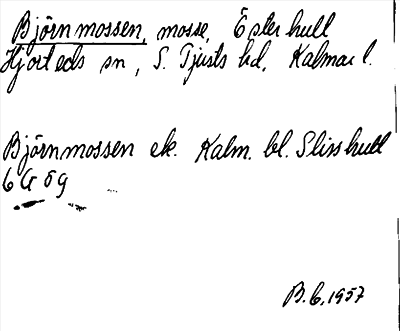 Björnmossen, mosse, Österhult
Hjorteds sn, S. Tjusts hd, Kalmar l.
Björnmossen ek. Kalm. bl. Slisshult
6 G 5 g
B. G. 1957